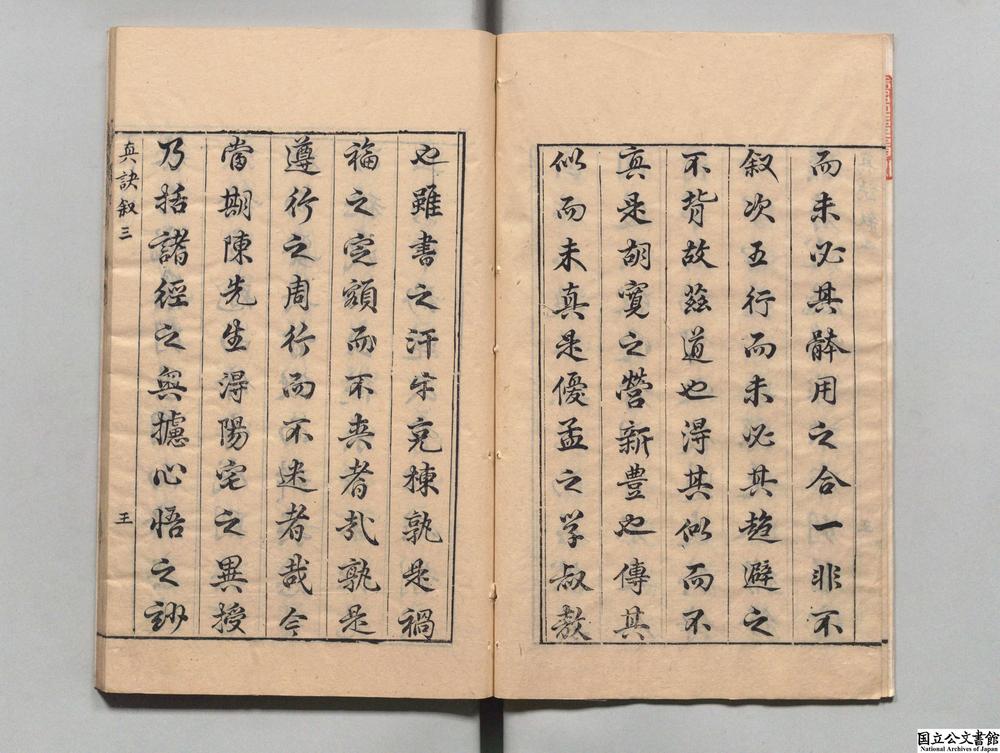 而未必其體用之合一非不
叙次五行而未必其趨避之
不背故茲道也得其似而不
真是胡寬之營新豊也傳其
似而未真是優孟之学叔敖
也雖書之汗牛充棟孰是禍
福之定額而不爽者乎孰是
遵行之周行而不迷者哉今
當期陳先生得陽宅之異授
乃括諸經之奥攄心悟之訣
真訣叙三
王
国立公文書館
National Archives of Japan